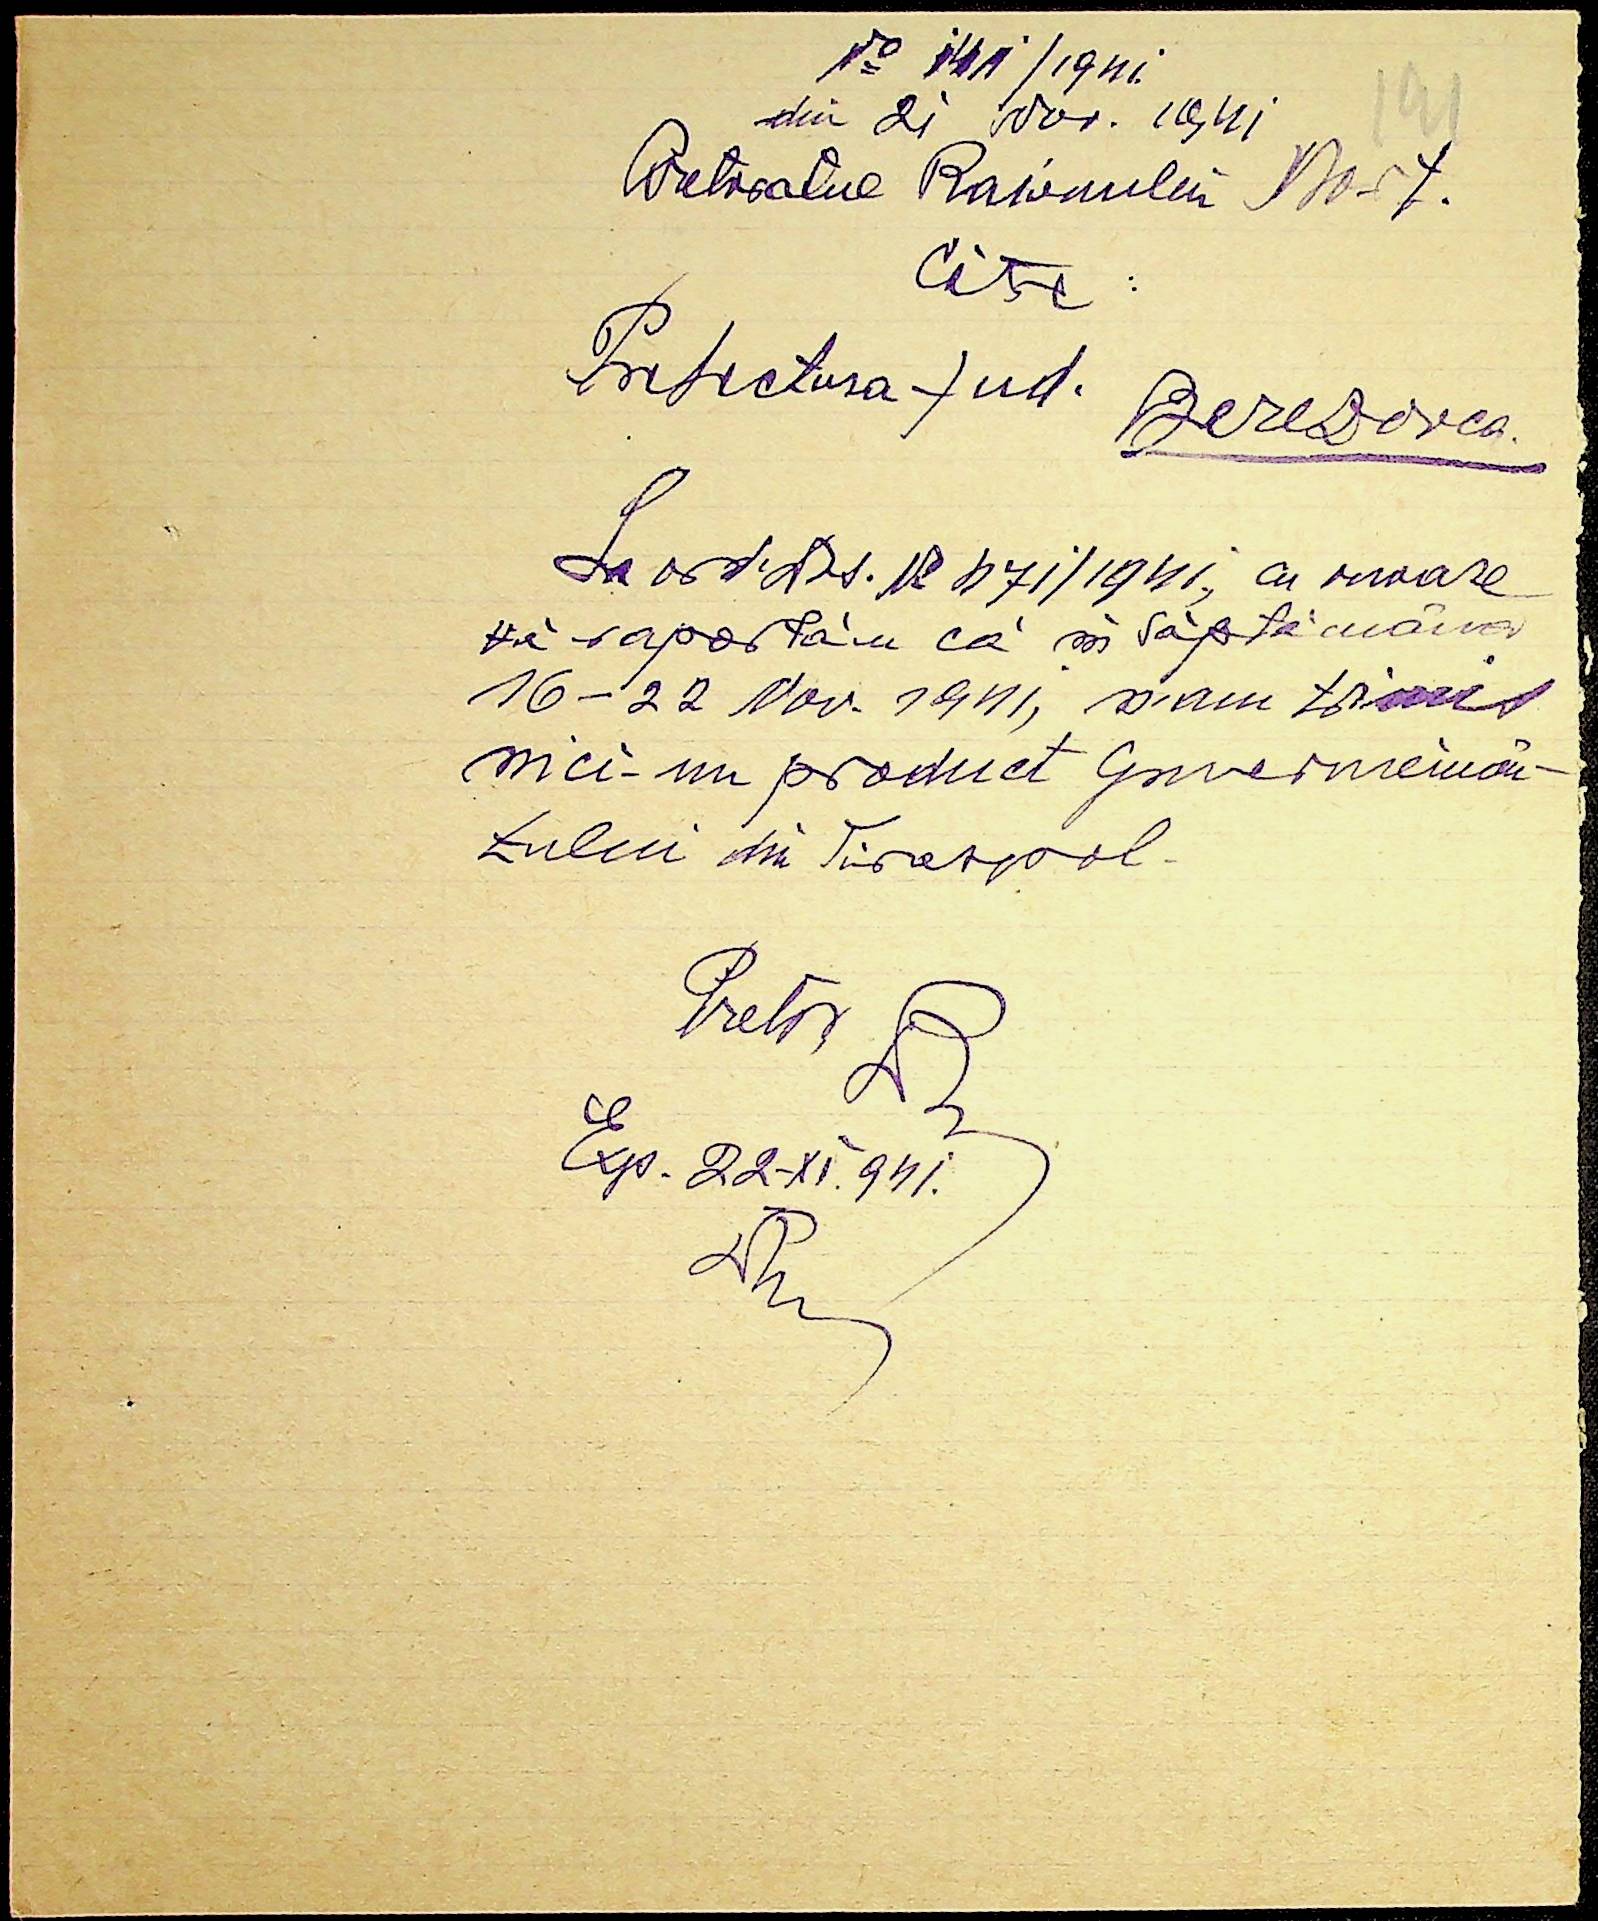 No 141/1941.
din 21 Nov. 1941
191
Pretoratul Raionului Most.
Către :
Prefectura Jud.
Berezovca.
La ord. Dvs. No 471/1941, cu onoare
vă raportăm că în săptămâna
16-22 Nov. 1941, n'am trimis
nici-un product Guvernămân-
tului din Tiraspol.
Pretor,
Exp. 22-XI.941.